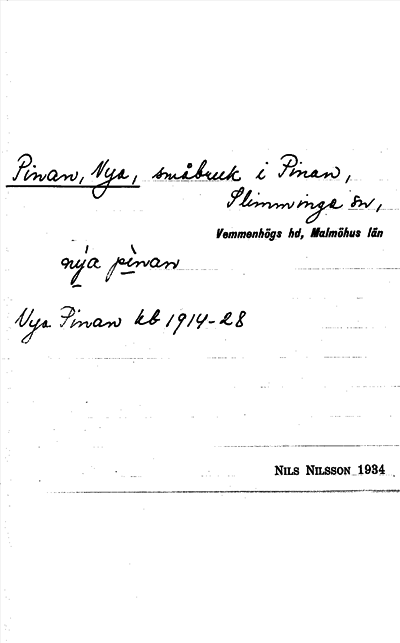 Pinan, Nya, småbruk i Pinan,
Slimminge sn,
Vemmenhögs hd, Malmöhus län
nýa pìnan
Nya Pinan kb 1914-28
NILS NILSSON 1934